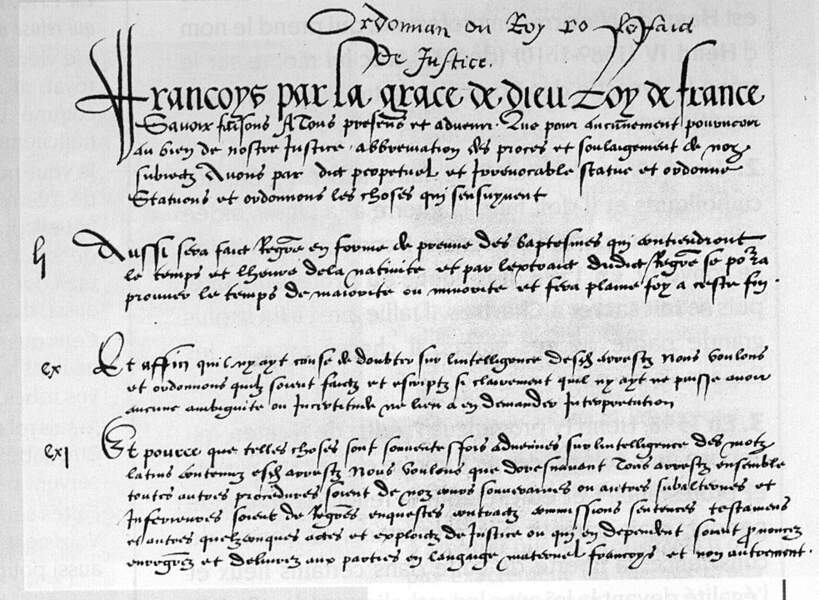 Ordonnan du Roy sur le faict
de Justice.
Francoys par la grace de dieu Roy de france
Scavoir faisons A Tous presens et advenir. Que pour aucunement pourveoir
au bien de nostre Justice, abbreviation des proces et soulaigement de noz
subiectz Avons par dict perpetuel et Irrevocable statue et ordonne
Statuons et ordonnons les choses qui sensuyvent
lj Aussi sera faict Regre en forme de preuve des baptesmes qui contiendront
le temps et lheure de la nativite et par lextraict dudict Regre se pora
prouver le temps de maiorite ou minorite et fera plaine foy a ceste fin.
cx Et affin quil ny ayt cause de doubter sur lintelligence desdz arrestz Nous voulons
et ordonnons quilz soient faictz et escriptz si clairement quil ny ayt ne puisse avoir
aucune ambiguite ou Incertitude ne lieu a en demander Interpretation
cxj Et pource que telles choses sont souventesfois advenues sur lintelligence des motz
latins contenuz esdz arrestz Nous voulons que doresnavant Tous arrestz ensemble
toutes autres procedures soient de noz cours souveraines ou autres subalternes et
Inferieures soient de Regres enquestes contractz commissions sentences testamens
et autres quelzconques actes et exploictz de Justice ou qui en dependent soient prononcez
enregrez et delivrez aux parties en langage maternel francoys et non autrement.